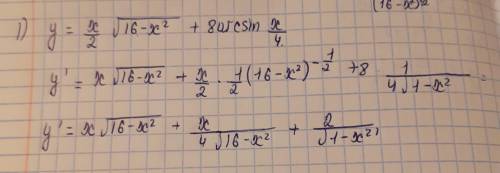 (16-x)2
1) y = x/2 √(16-x²) + 8arcsin x/4.
y' = x√(16-x²) + x/2 · 1/2 (16-x²)^(-1/2) + 8 · 1/(4√(1-x²)) =
y' = x√(16-x²) + x/(4√(16-x²)) + 2/√(1-x²)